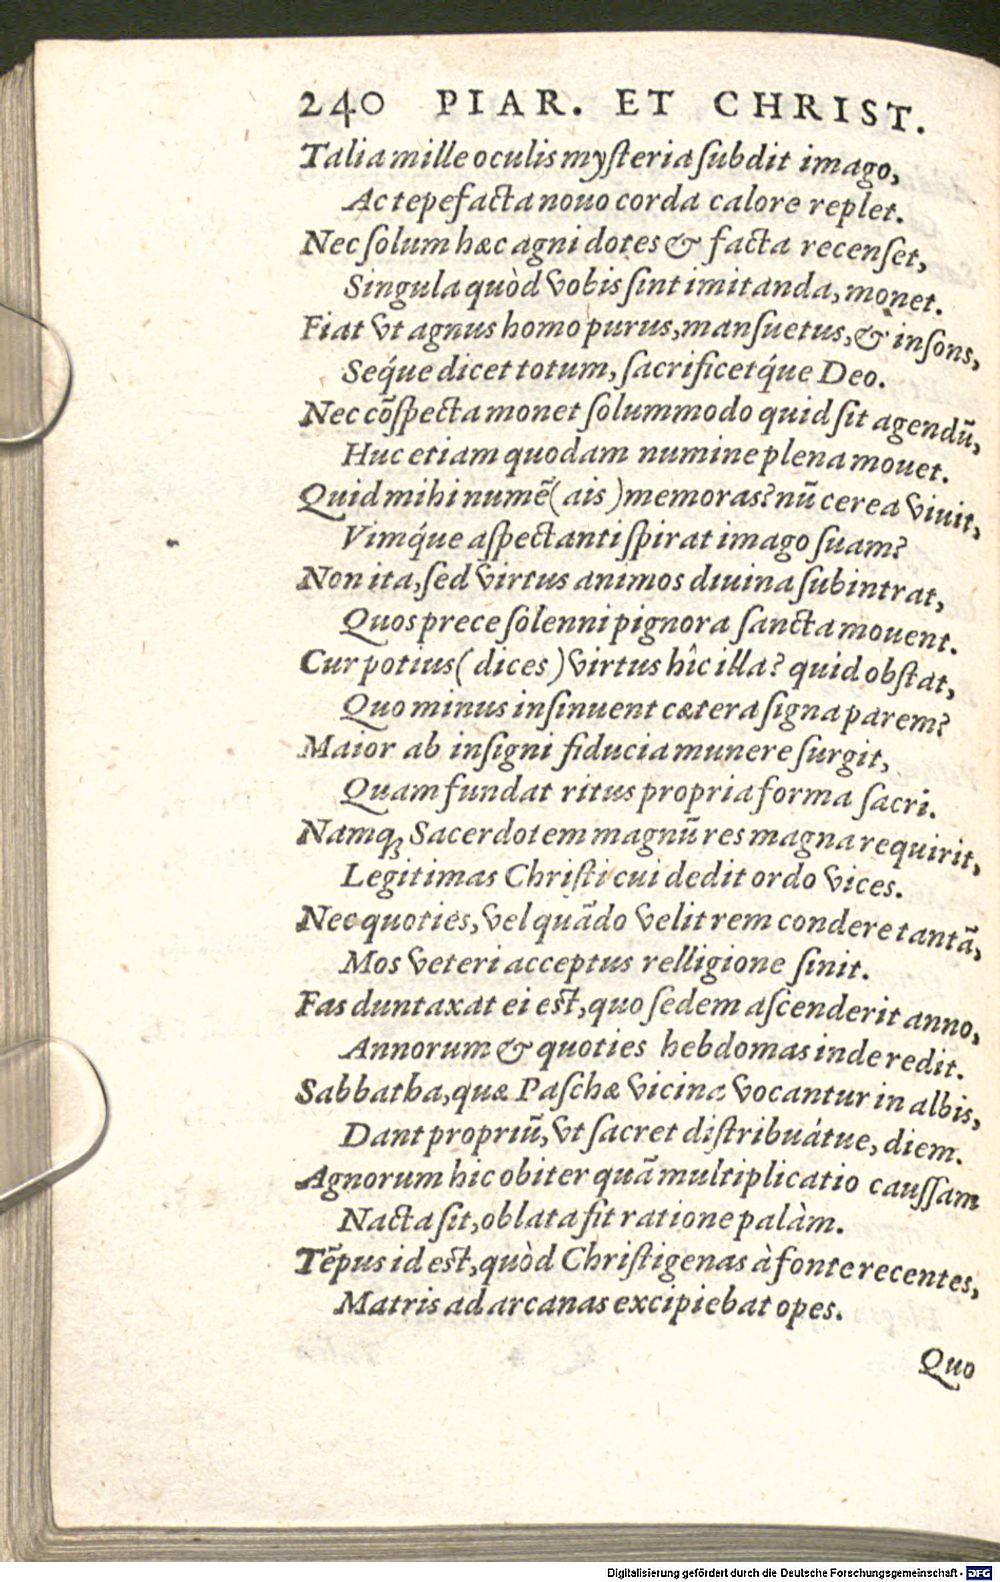 240 PIAR. ET CHRIST.
Talia mille oculis mysteria subdit imago,
Ac tepefacta nouo corda calore replet.
Nec solum hæc agni dotes & facta recenset,
Singula quòd vobis sint imitanda, monet.
Fiat vt agnus homo purus, mansuetus, & insons,
Seq́ue dicet totum, sacrificetq́ue Deo.
Nec cōspecta monet solummodo quid sit agendū,
Huc etiam quodam numine plena mouet.
Quid mihi numē (ais) memoras? nū cerea viuit,
Vimq́ue aspectanti spirat imago suam?
Non ita, sed virtus animos diuina subintrat,
Quos prece solenni pignora sancta mouent.
Cur potius (dices) virtus hîc illa? quid obstat,
Quo minus insinuent cætera signa parem?
Maior ab insigni fiducia munere surgit,
Quam fundat ritus propria forma sacri.
Namq; Sacerdotem magnū res magna requirit,
Legitimas Christi cui dedit ordo vices.
Nec quoties, vel quādo velit rem condere tantā,
Mos veteri acceptus relligione sinit.
Fas duntaxat ei est, quo sedem ascenderit anno,
Annorum & quoties hebdomas inde redit.
Sabbatha, quæ Paschæ vicina vocantur in albis,
Dant propriū, vt sacret distribuátue, diem.
Agnorum hic obiter quā multiplicatio caussam
Nacta sit, oblata fit ratione palàm.
Tēpus id est, quòd Christigenas à fonte recentes,
Matris ad arcanas excipiebat opes.
Quo
Digitalisierung gefördert durch die Deutsche Forschungsgemeinschaft - DFG